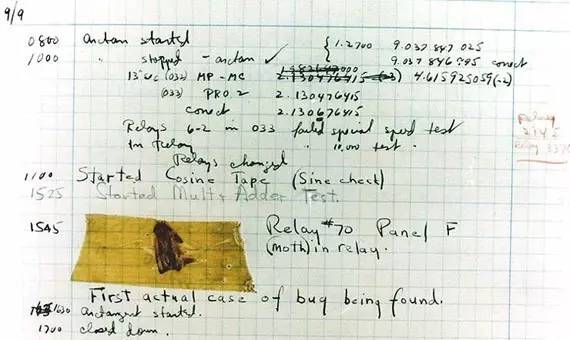 9/9
0800 arctan started { 1.2700 9.037 847 025
1000 " stopped - arctan ✓ 9.037 846 995 correct
13"uc (032) MP - MC 2.130476415 (-3) 4.615925059 (-2)
(033) PRO 2 2.130476415
correct 2.130676415
Relays 6-2 in 033 failed special speed test
In Relay " 10,000 test.
Relays changed
Relay
2145
Relay 3370
1100 Started Cosine Tape (Sine check)
1525 Started Mult + Adder Test.
1545 Relay #70 Panel F
(Moth) in relay.
First actual case of bug being found.
1630 arctangent started.
1700 closed down.